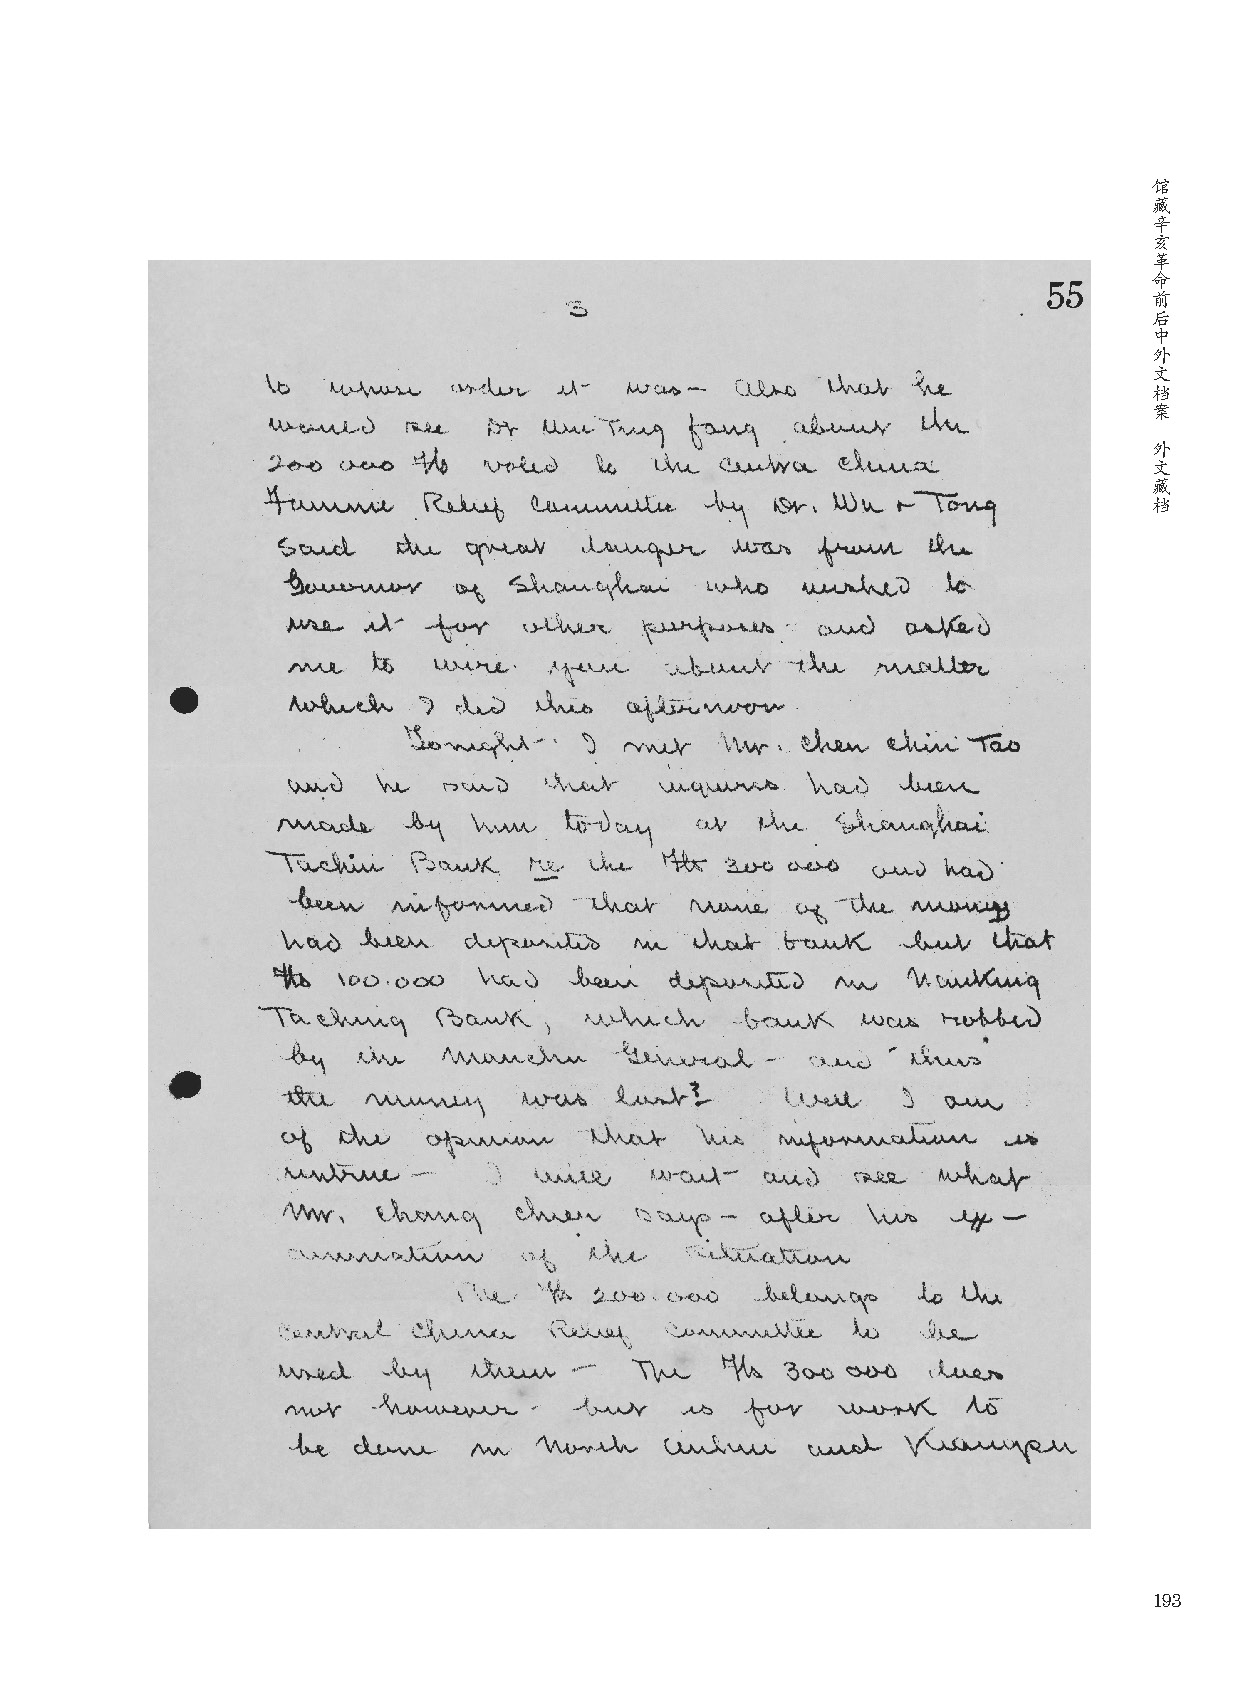 55
3
to whose order it was— Also that he
would see Dr Wu Ting fang about the
200 000 Tls voted to the Centra China
Famine Relief Committee by Dr. Wu + Tong
said the great danger was from the
Governor of Shanghai who wished to
use it for other purposes and asked
me to wire you about the matter
which I did this afternoon
Tonight I met Mr. Chen Chin Tao
and he said that inquires had been
made by him today at the Shanghai
Tachin Bank re the Tls 300 000 and had
been informed that none of the money
had been deposited in that bank but that
Tls 100.000 had been deposited in Nanking
Taching Bank, which bank was robbed
by the Manchu General – and "thus"
the money was lost? Well I am
of the opinion that his information is
untrue — I will wait and see what
Mr. Chang Chien says — after his ex —
amination of the situation
The Tls 200.000 belongs to the
Central China Relief Committee to be
used by them — The Tls 300 000 does
not however – but is for work to
be done in North Anhui and Kiangpu
馆藏辛亥革命前后中外文档案 外文藏档
193